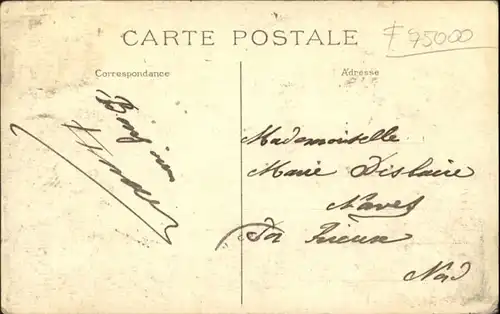 CARTE POSTALE
75000
Correspondance
Adresse
Mademoiselle
Marie Dislaire
Naves
Par Rieux
Nord